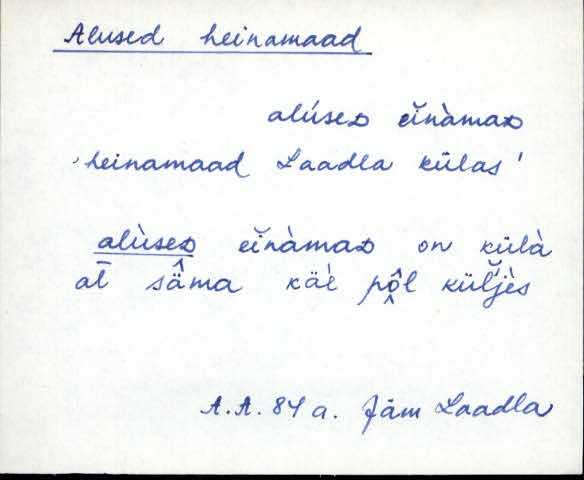 Alused heinamaad
alúseᴅ ei̯nàmaᴅ
'heinamaad Laadla külas'
alùseᴅ ei̯nàmaᴅ on külà
al̄ sä̂ma käè pô̭l külljès
A.A. 84 a. Jäm Laadla